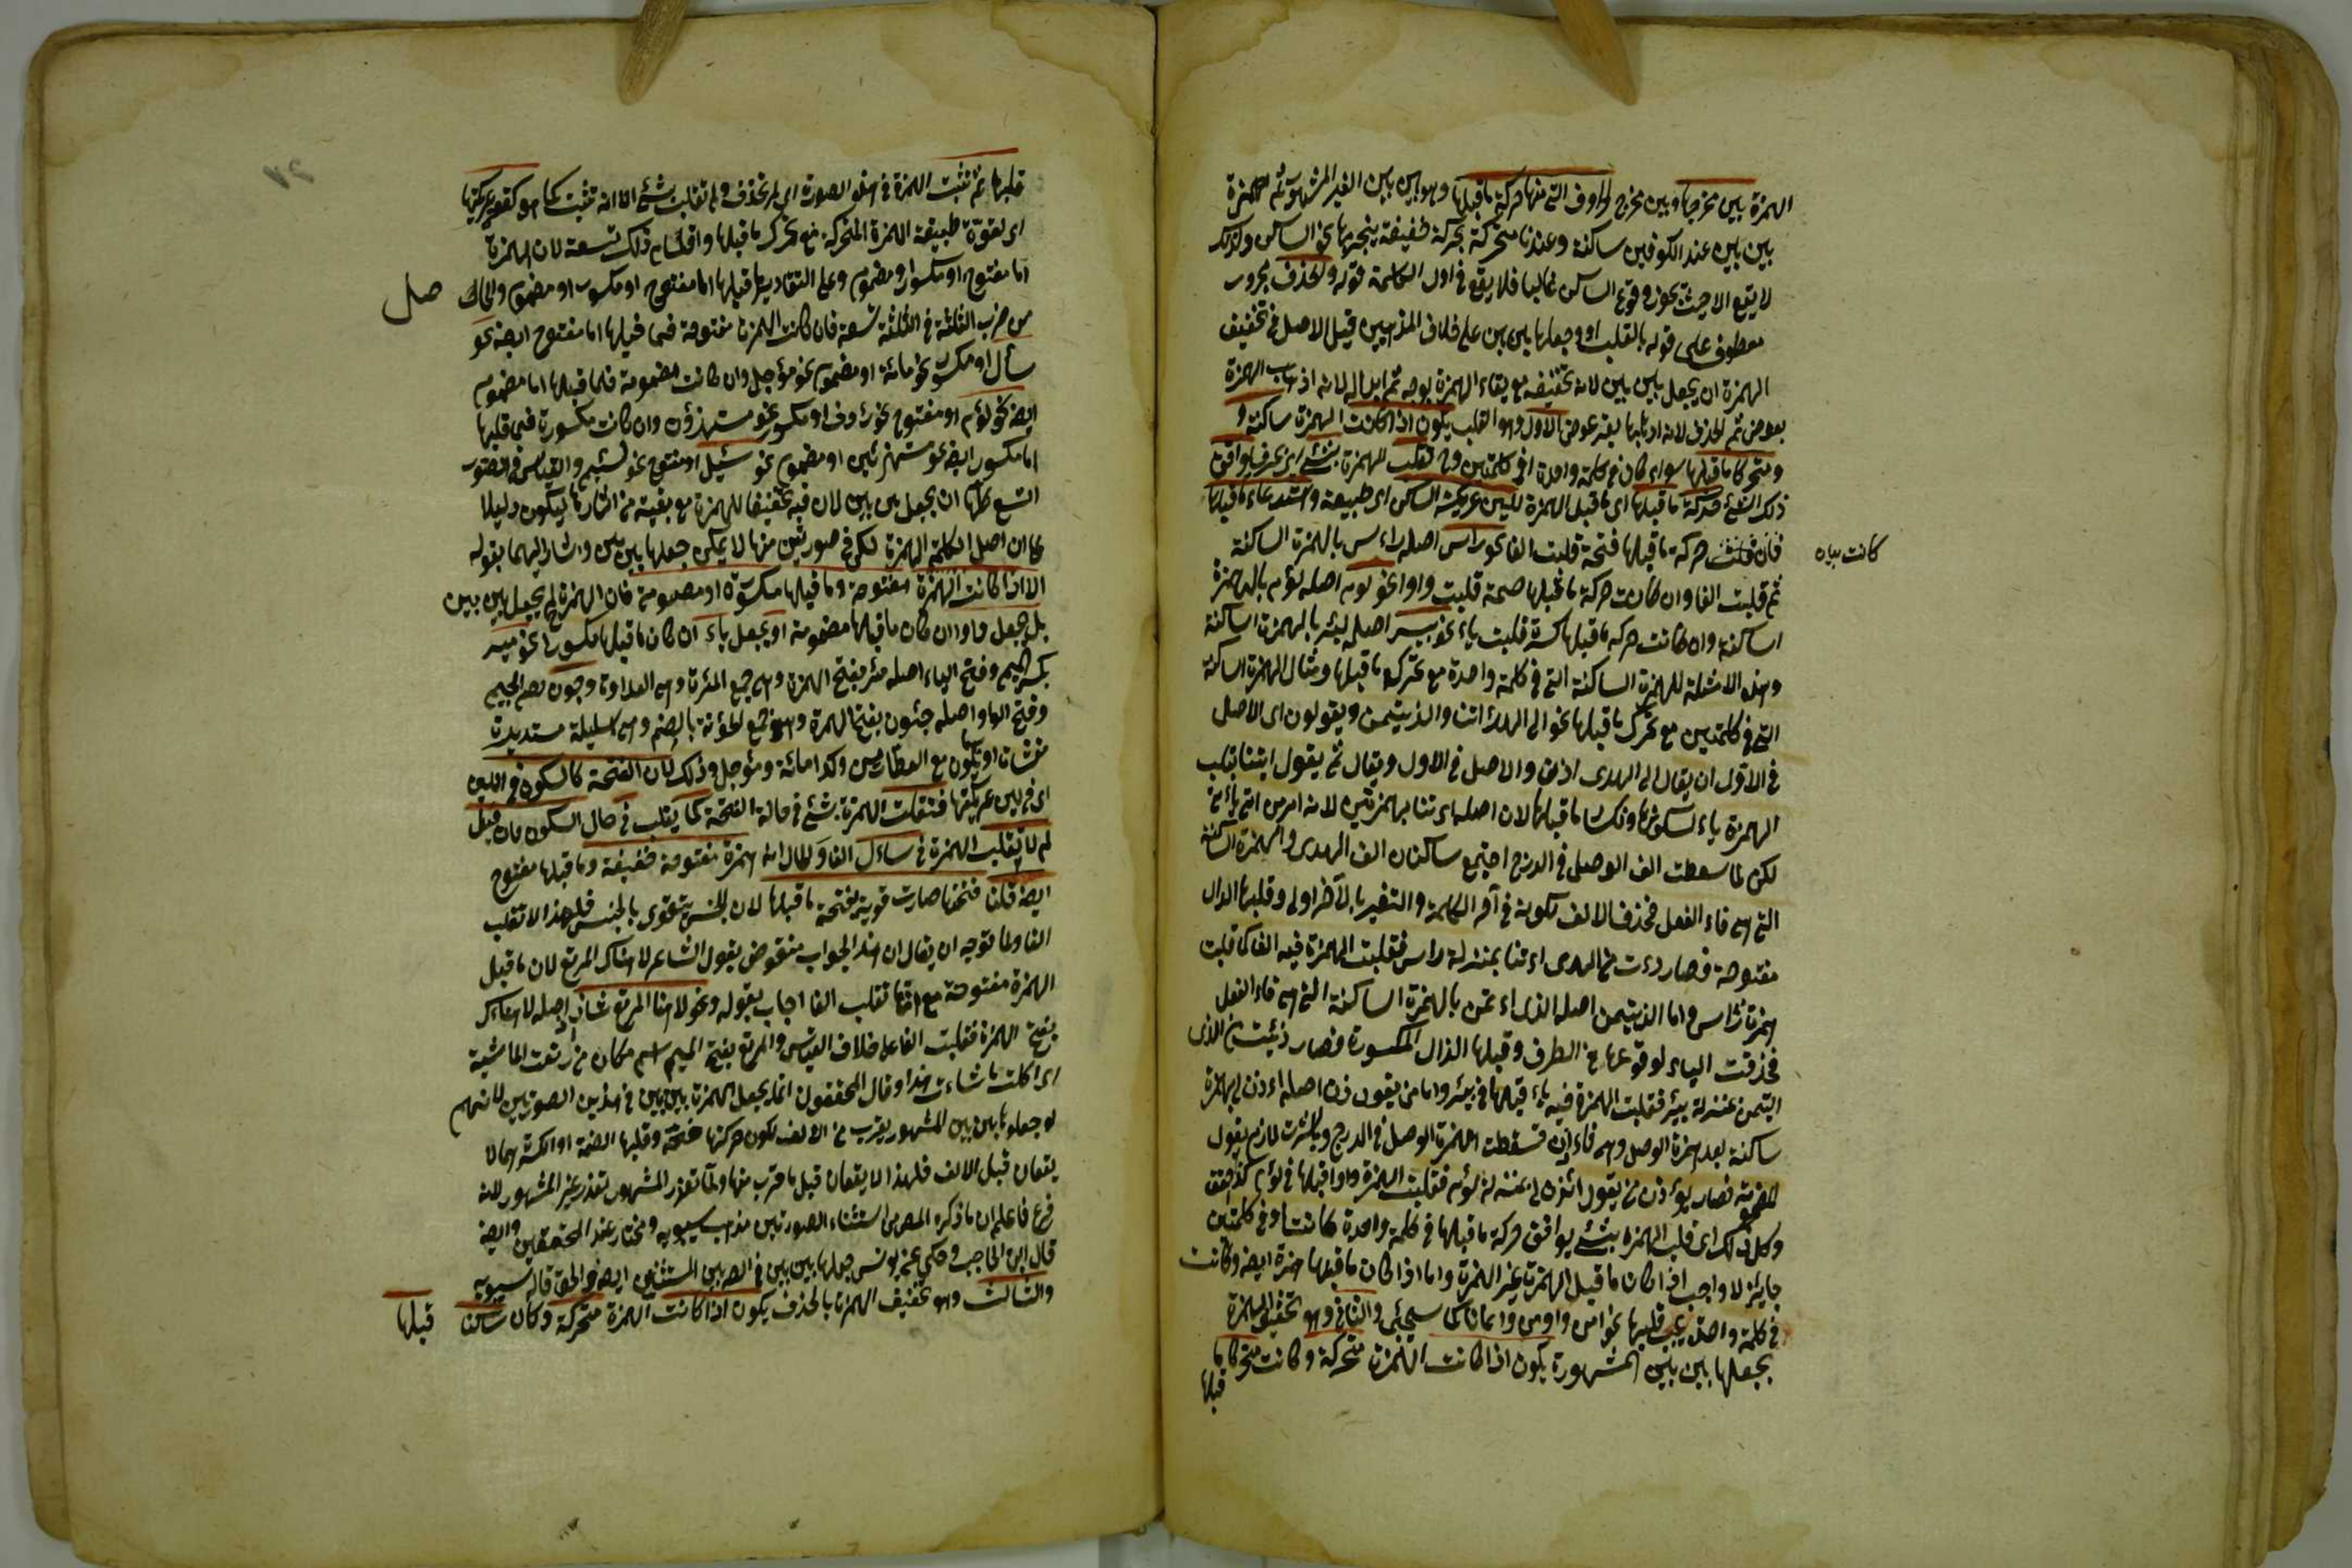 الهمزة بين مخرجها وبين مخرج الحروف التي منها حركة ما قبلها وهو بين بين الغير المشهور ثم همزة
بين بين عند الكوفيين ساكنة وعندنا متحركة بحركة ضعيفة ينحى بها نحو الساكن ولذلك
لا يقع الا حيث يجوز وقوع الساكن غالبا فلا يقع في اول الكلمة قوله والحذف مجرور
معطوف على قوله بالقلب او وجعلها بين بين على خلاف المذهبين قيل الاصل في تخفيف
الهمزة ان يجعل بين بين لانه تخفيف مع بقاء الهمزة بوجه ثم ابدال لانه اذهاب الهمزة
بعوض ثم الحذف لانه اذهابها بغير عوض الاول وهو القلب يكون اذا كانت الهمزة ساكنة و
متحركا ما قبلها سواء كان في كلمة واحدة او في كلمتين وح تقلب الهمزة بشيء اي بحرف يوافق
ذلك الشيء حركة ما قبلها اي ما قبل الهمزة للين عريكة الساكن اى طبيعته واستدعاء ما قبلها
فان كانت حركة ما قبلها فتحة قلبت الفا نحو راس اصله رأس بالهمزة الساكنة
كانت بياه
ثم قلبت الفا وان كانت حركة ما قبلها ضمة قلبت واوا نحو لوم اصله لؤم بالهمزة
الساكنة وان كانت حركة ما قبلها كسرة قلبت ياء نحو بير اصله بئر بالهمزة الساكنة
وهذه الامثلة للهمزة الساكنة التي في كلمة واحدة مع تحرك ما قبلها ومثال الهمزة الساكنة
التي في كلمتين مع تحرك ما قبلها نحو الى الهدأتنا والذيتمن ويقولون اى الاصل
في الاول ان يقال الى الهدى ائتنا والاصل في الاول ويقال ثم يقول ايتنا بقلب
الهمزة ياء لسكونها وكسر ما قبلها لان اصله ائتنا بهمزتين لانه امر من اتى يأتي
لكن لما سقطت الف الوصل في الدرج اجتمع ساكنان الف الهدى والهمزة الساكنة
التي هي فاء الفعل فحذف الالف لكونه في آخر الكلمة والتغيير بالآخر اولى وقبلها الدال
مفتوحة فصار دءت من الهدى ائتنا بمنزلة راس فقلبت الهمزة فيه الفا كما قلبت
همزة راس واما الذيتمن اصله الذى اءتمن بالهمزة الساكنة التي هي فاء الفعل
فحذفت الياء لوقوعها في الطرف وقبلها الذال المكسورة فصار ذئت من الذى
ايتمن بمنزلة بئر فقلبت الهمزة فيه ياء قلبها في بئر واما من يقول ذن اصله اءذن لى بهمزة
ساكنة بعد همزة الوصل وهي فاء فسقطت الهمزة الوصل في الدرج لازم يقول
المضمومة فصار يقول ائذن لى بمنزلة لؤم فقلبت الهمزة واوا قلبها في لؤم
وكل ذلك اى قلب الهمزة بشيء يوافق حركة ما قبلها في كلمة واحدة كانت او في كلمتين
جايز لا واجب اذا كان ما قبل الهمزة غير الهمزة واما اذا كان ما قبلها همزة ايضا وكانت
في كلمة واحدة يجب قلبها نحو امن واومن وايمانا كما سيجئ والثاني وهو تخفيف الهمزة
بجعلها بين بين المشهورة يكون اذا كانت الهمزة متحركة وكانت متحركا ما
قبلها
قبلها ثم تثبت الهمزة في هذه الصورة اى لم تحذف ولم تقلب بشيء الا انه تثبت كما هو لقوة عريكتها
اى لقوة طبيعة الهمزة المتحركة مع تحرك ما قبلها واقسام ذلك تسعة لان الهمزة
اما مفتوح او مكسور او مضموم وعلى التقادير ما قبلها اما مفتوح او مكسور او مضموم والحاصل
صل
من ضرب الثلثة في الثلثة تسعة فان كانت الهمزة مفتوحة فما قبلها اما مفتوح ايضا نحو
سأل او مكسور نحو مائة او مضموم نحو مؤجل وان كانت مضمومة فما قبلها اما مضموم
ايضا نحو لؤم او مفتوح نحو رؤف او مكسور نحو مستهزؤن وان كانت مكسورة فما قبلها
اما مكسور ايضا نحو مستهزئين او مضموم نحو سئل او مفتوح نحو لئيم والقياس في الصور
التسع كلها ان يجعل بين بين لان فيه تخفيفا للهمزة مع بقية من آثارها ليكون دليلا
على ان اصل الكلمة الهمزة لكن في صورتين منها لا يمكن جعلها بين بين واشار اليهما بقوله
الا اذا كانت الهمزة مفتوحة وما قبلها مكسورة او مضمومة فان الهمزة لم يجعل بين بين
بل يجعل واوا ان كان ما قبلها مضمومة او يجعل ياء ان كان ما قبلها مكسورا نحو مير
بكسر الميم وفتح الياء اصله مئر بفتح الهمزة وهي جمع المئرة وهي العداوة وجون بضم الجيم
وفتح الواو اصله جئون بفتح الهمزة وهو جمع لجؤنة بالضم وهي سليلة مستديرة
مغشاة ادما يكون مع العطارين وكذا مائة ومؤجل وذلك لان الفتحة كالسكون في اللين
اى في لين عريكتها فتقلب الهمزة بشيء في حالة الفتحة كما يقلب في حال السكون فان قيل
لم لا تقلب الهمزة في سأل الفا والحال انه همزة مفتوحة ضعيفة وما قبلها مفتوح
ايضا قلنا فتحتها صارت قوية بفتحة ما قبلها لان الجنس يتقوى بالجنس فلهذا لا تقلب
الفا ولما توجه ان يقال ان هذا الجواب منقوض بقول الشاعر لا هناك المرتع لان ما قبل
الهمزة مفتوحة مع انها تقلب الفا اجاب بقوله ونحو لا هناك المرتع شاذ اصله لا هنأك
بفتح الهمزة فقلبت الفا على خلاف القياس والمرتع بفتح الميم اسم مكان من رتعت الماشية
اى اكلت ما شاءت هذا وقال المحققون انما يجعل الهمزة بين بين في هذين الصورتين لانهم
لو جعلوها بين بين المشهور يقرب من الالف لكون حركتها فتحة وقبلها الضمة او الكسرة وهما لا
يقعان قبل الالف فلهذا لا يقعان قبل ما قرب منها ولما تعذر المشهور تعذر غير المشهور لانه
فرع فاعلم ان ما ذكره المص من استثناء الصورتين مذهب سيبويه ومختار عند المحققين وايضا
قال ابن الحاجب وحكي عن يونس جعلها بين بين في الصورتين المستثنين ايضا والحق قاله سيبويه
والثالث وهو تخفيف الهمزة بالحذف يكون اذا كانت الهمزة متحركة وكان ساكنا
قبلها